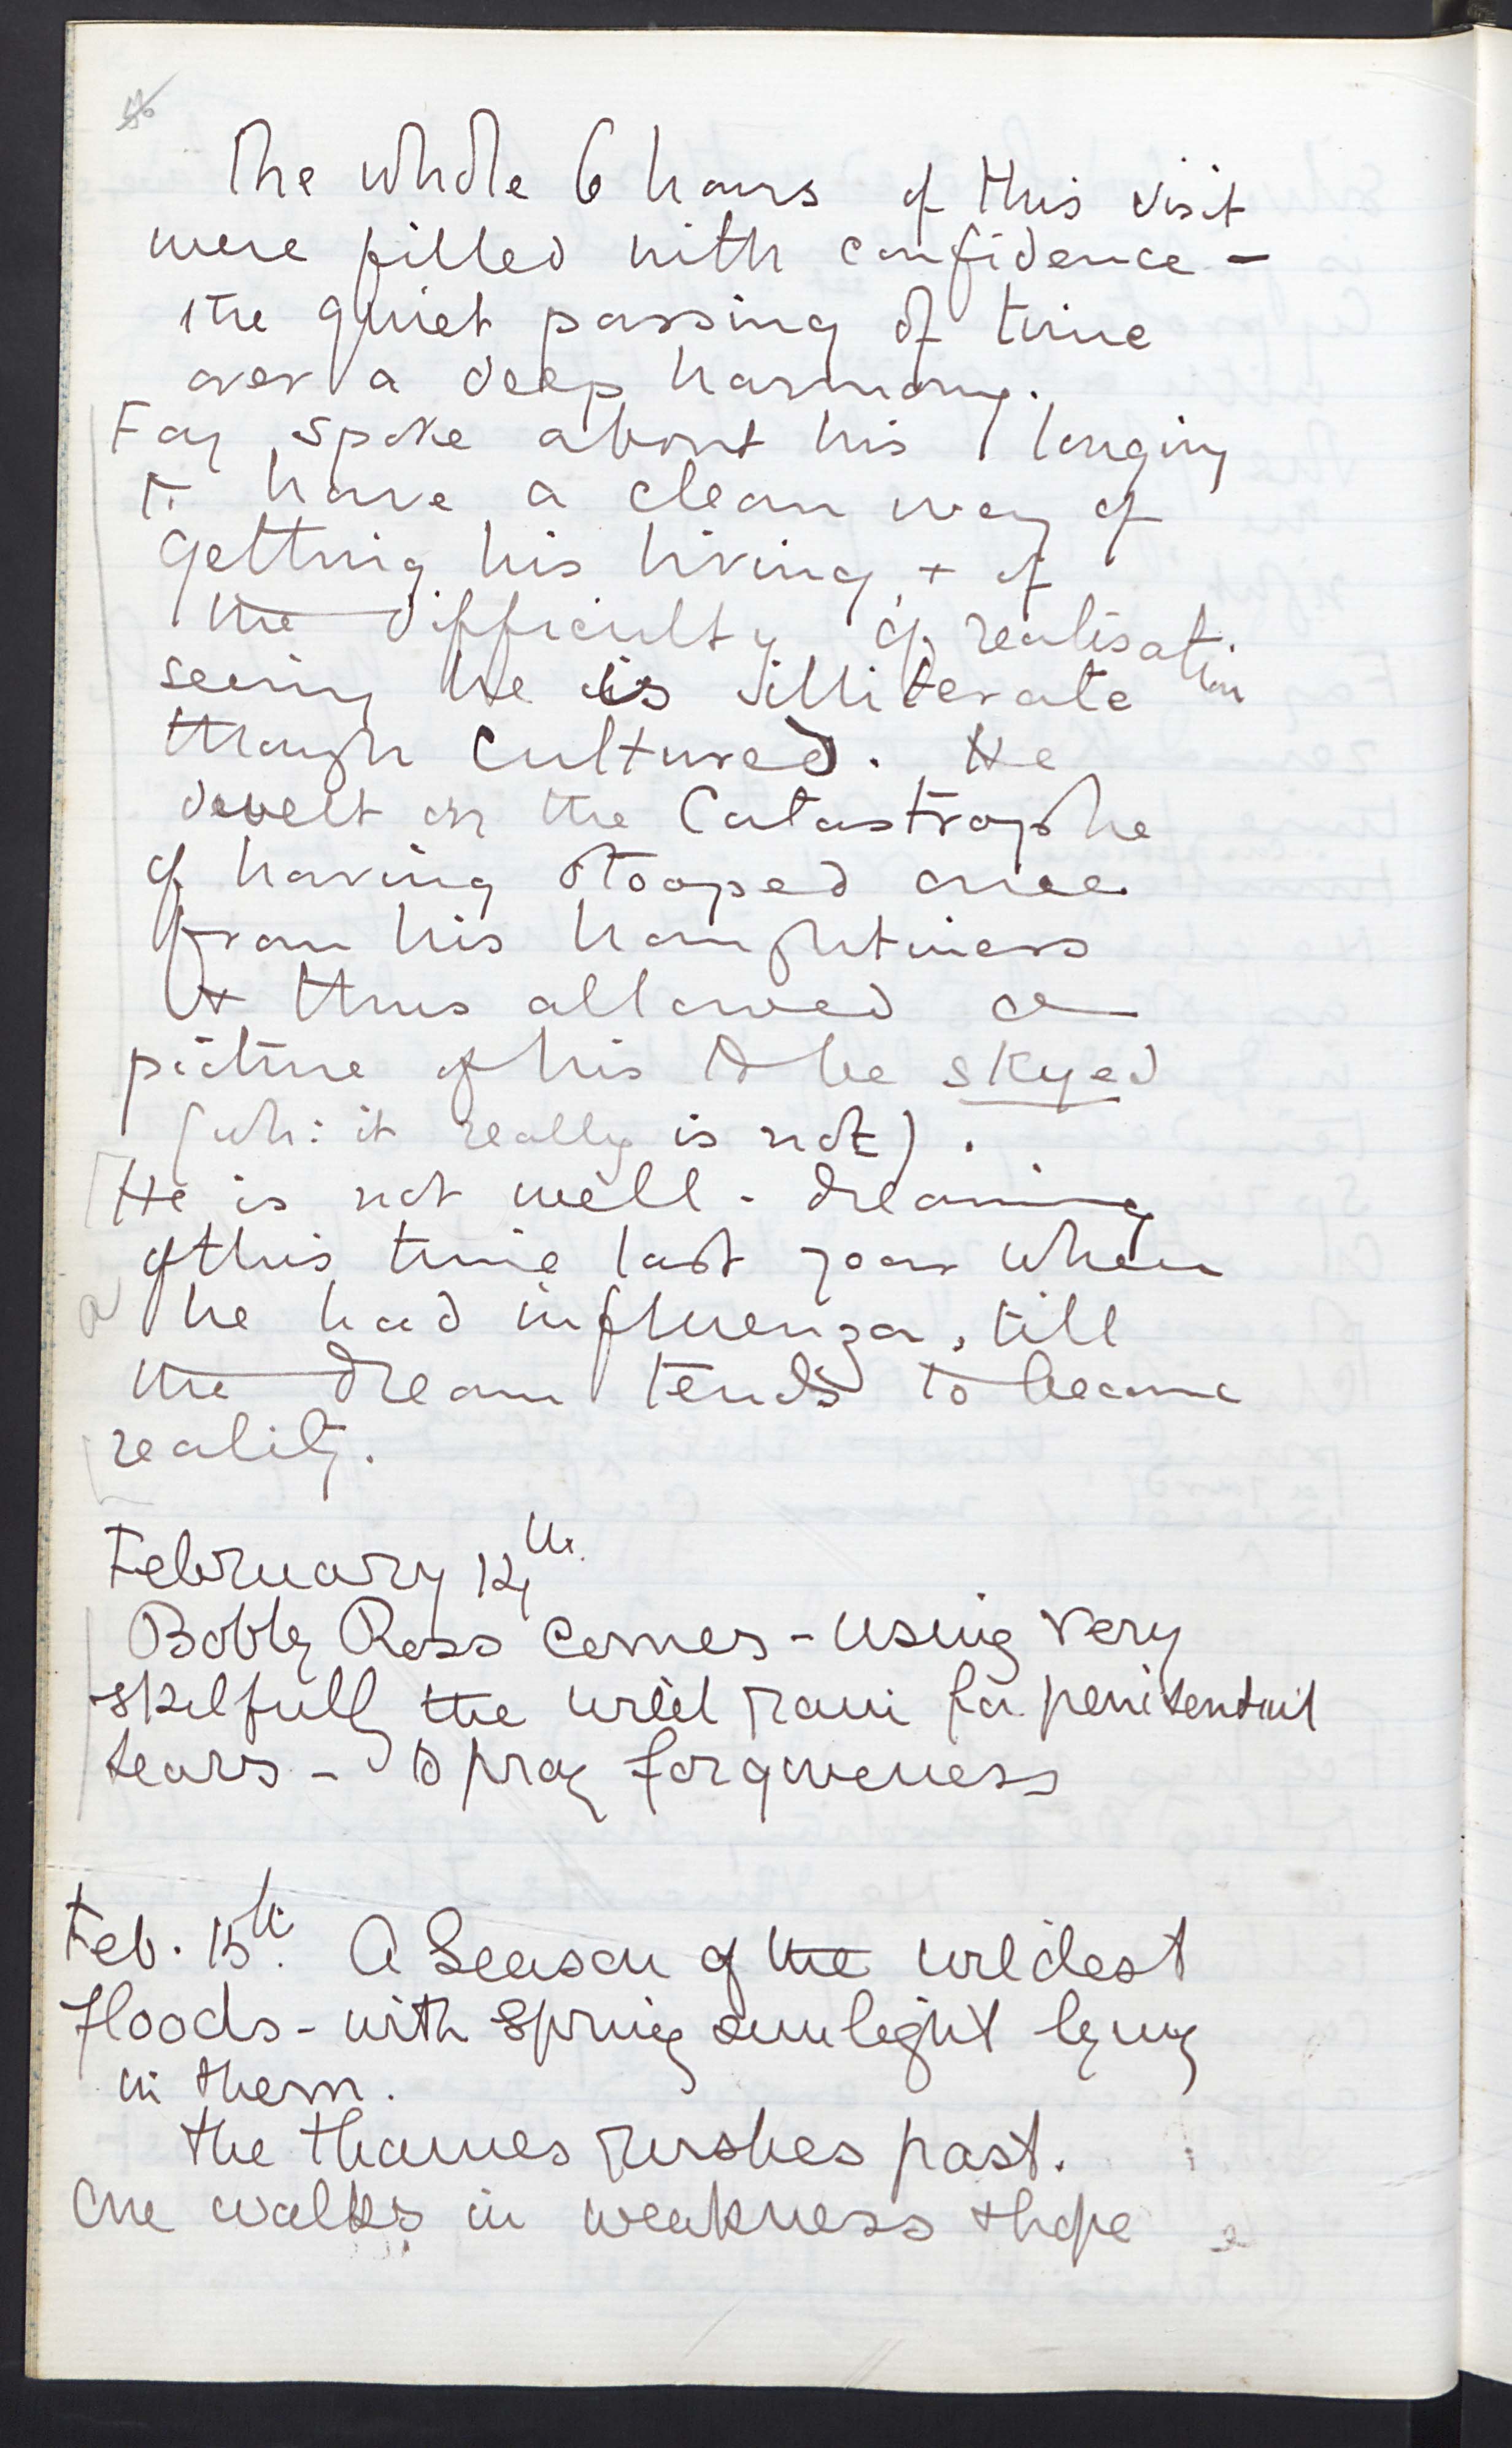 The whole 6 hours of this visit
were filled with confidence –
the quiet passing of time
over a deep harmony.
Fay spoke about his longing
to have a clean way of
getting his living, + of
the difficulty of realisation
seeing he is illiterate
though cultured. He
dwelt on the Catastrophe
of having stooped once
from his haughtiness
& thus allowed a
picture of his to be skyed
(wh: it really is not).
He is not well - dreaming
of this time last year when
he had influenza, till
the dream tends to become
reality.
February 12th
Bobby Ross comes - using very
skilfully the wild rain for penitential
tears - to pray forgiveness
Feb. 15th. A Season of the wildest
floods - with spring sunlight lying
in them.
The Thames rushes past.
One walks in weakness & hope